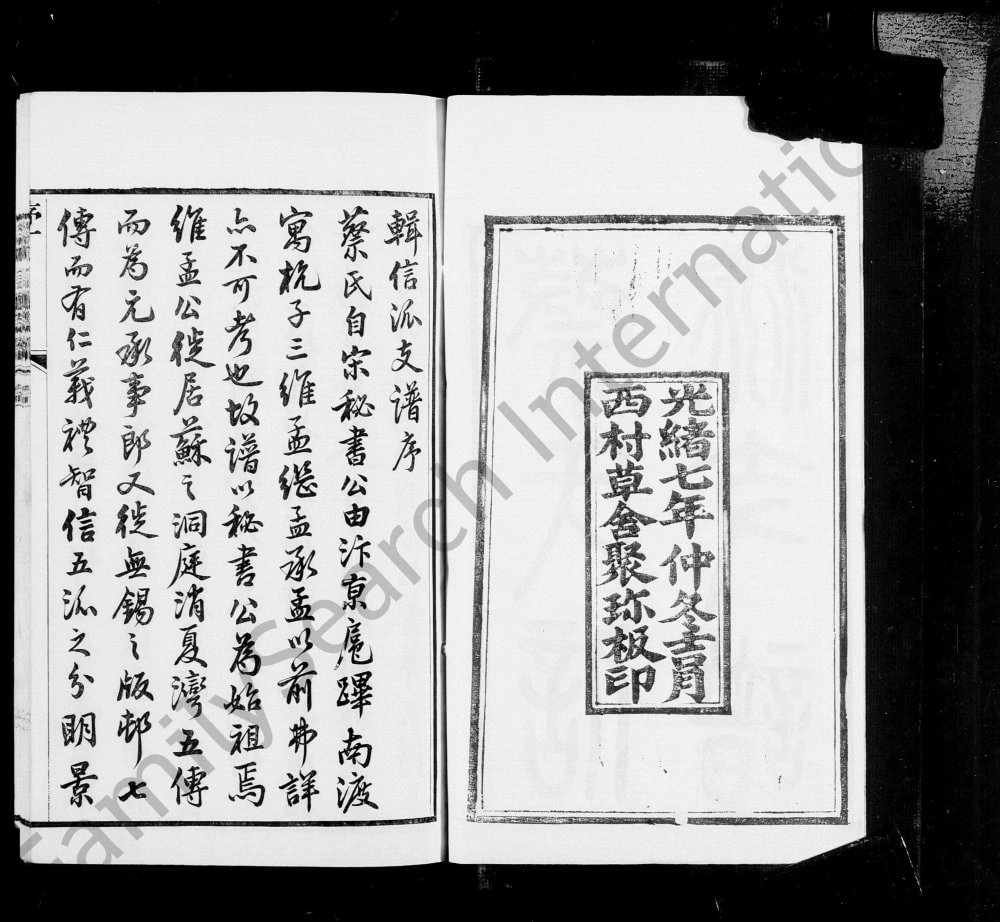 光緒七年仲冬壬月
西村草舍聚珎板印
輯信派支譜序
蔡氏自宋秘書公由汴京扈蹕南渡
寓杭子三維孟繼孟承孟以前弗詳
亦不可考也故譜以秘書公為始祖焉
維孟公徙居蘇之洞庭消夏灣五傳
而為元承事郎又徙無錫之版邨七
傳而有仁義禮智信五派之分明景
序
FamilySearch International